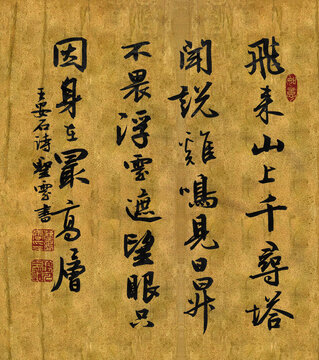 飛来山上千尋塔
聞說雞鳴見日昇
不畏浮雲遮望眼只
因身在最高層
王安石诗聖雲書